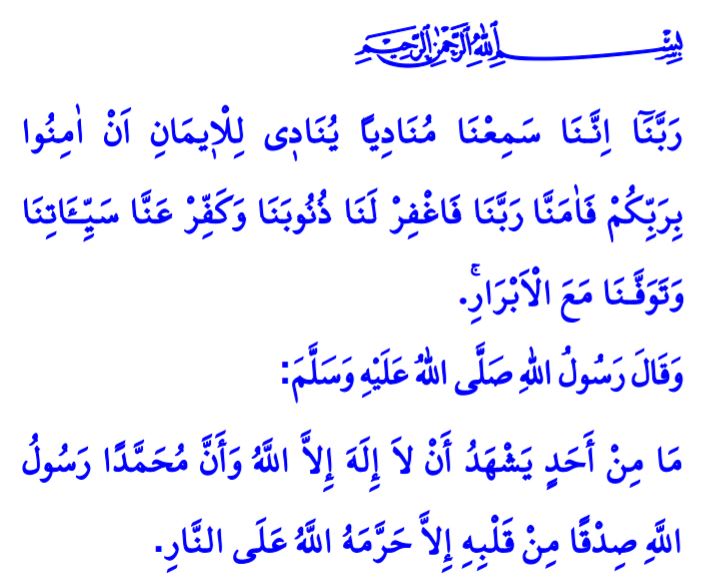 بِسْمِ اللّٰهِ الرَّحْمٰنِ الرَّحِيمِ
رَبَّنَٓا اِنَّـنَا سَمِعْنَا مُنَادِياً يُنَاد۪ى لِلْا۪يمَانِ اَنْ اٰمِنُوا
بِرَبِّكُمْ فَاٰمَنَّا رَبَّنَا فَاغْفِرْ لَنَا ذُنُوبَنَا وَكَفِّرْ عَنَّا سَيِّـَٔاتِنَا
وَتَوَفَّـنَا مَعَ الْاَبْرَارِۚ.
وَقَالَ رَسُولُ اللّٰهِ صَلَّى اللّٰهُ عَلَيْهِ وَسَلَّمَ:
مَا مِنْ أَحَدٍ يَشْهَدُ أَنْ لاَ إِلَهَ إِلاَّ اللَّهُ وَأَنَّ مُحَمَّدًا رَسُولُ
اللَّهِ صِدْقًا مِنْ قَلْبِهِ إِلاَّ حَرَّمَهُ اللَّهُ عَلَى النَّارِ.